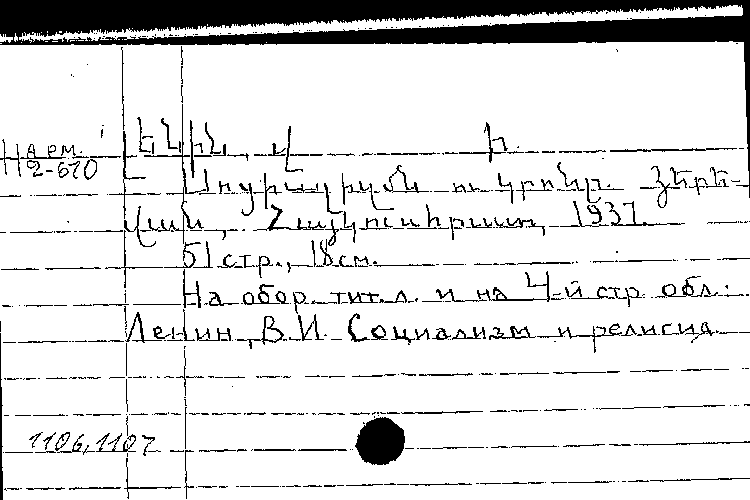 Н арм.
2-670
ԼԵՆԻՆ, Վ. Ի.
Սոցիալիզմն ու կրոնը. Յերե-
վան, Հայկուսհրատ, 1937.
51 стр., 18 см.
На обор. тит. л. и на 4-й стр. обл.:
Ленин, В.И. Социализм и религия
1106, 1107